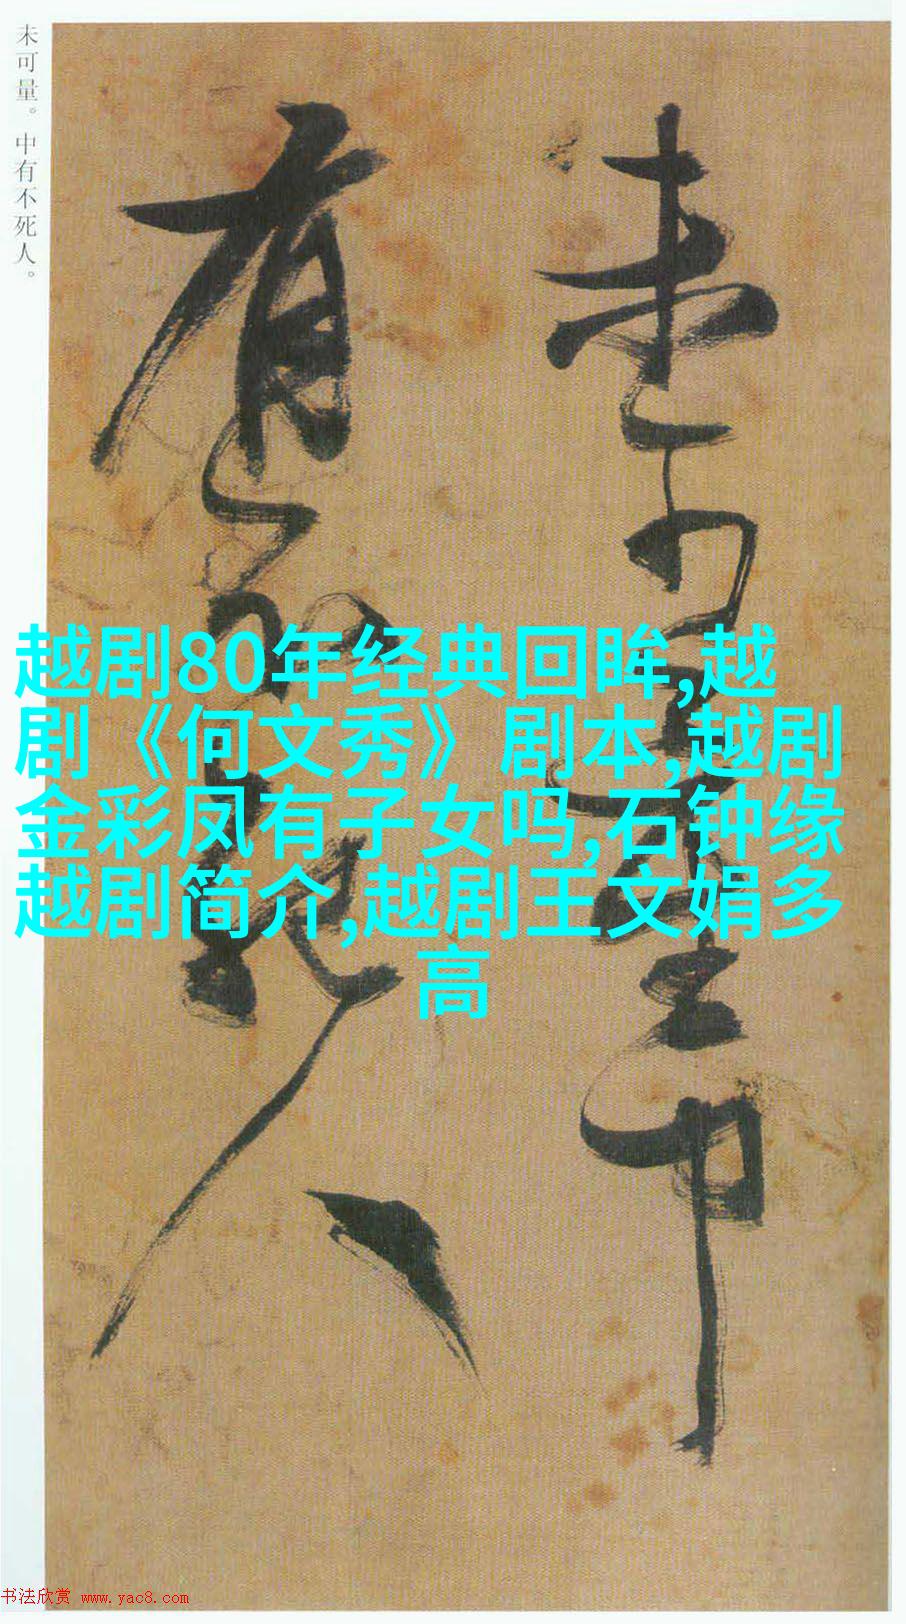 未可量。中有不死人。
未可量中
有不死人
越剧80年经典回眸,越
剧《何文秀》剧本,越剧
金彩凤有子女吗,石钟缘
越剧简介,越剧王文娟多
高
书法欣赏 www.yac8.com